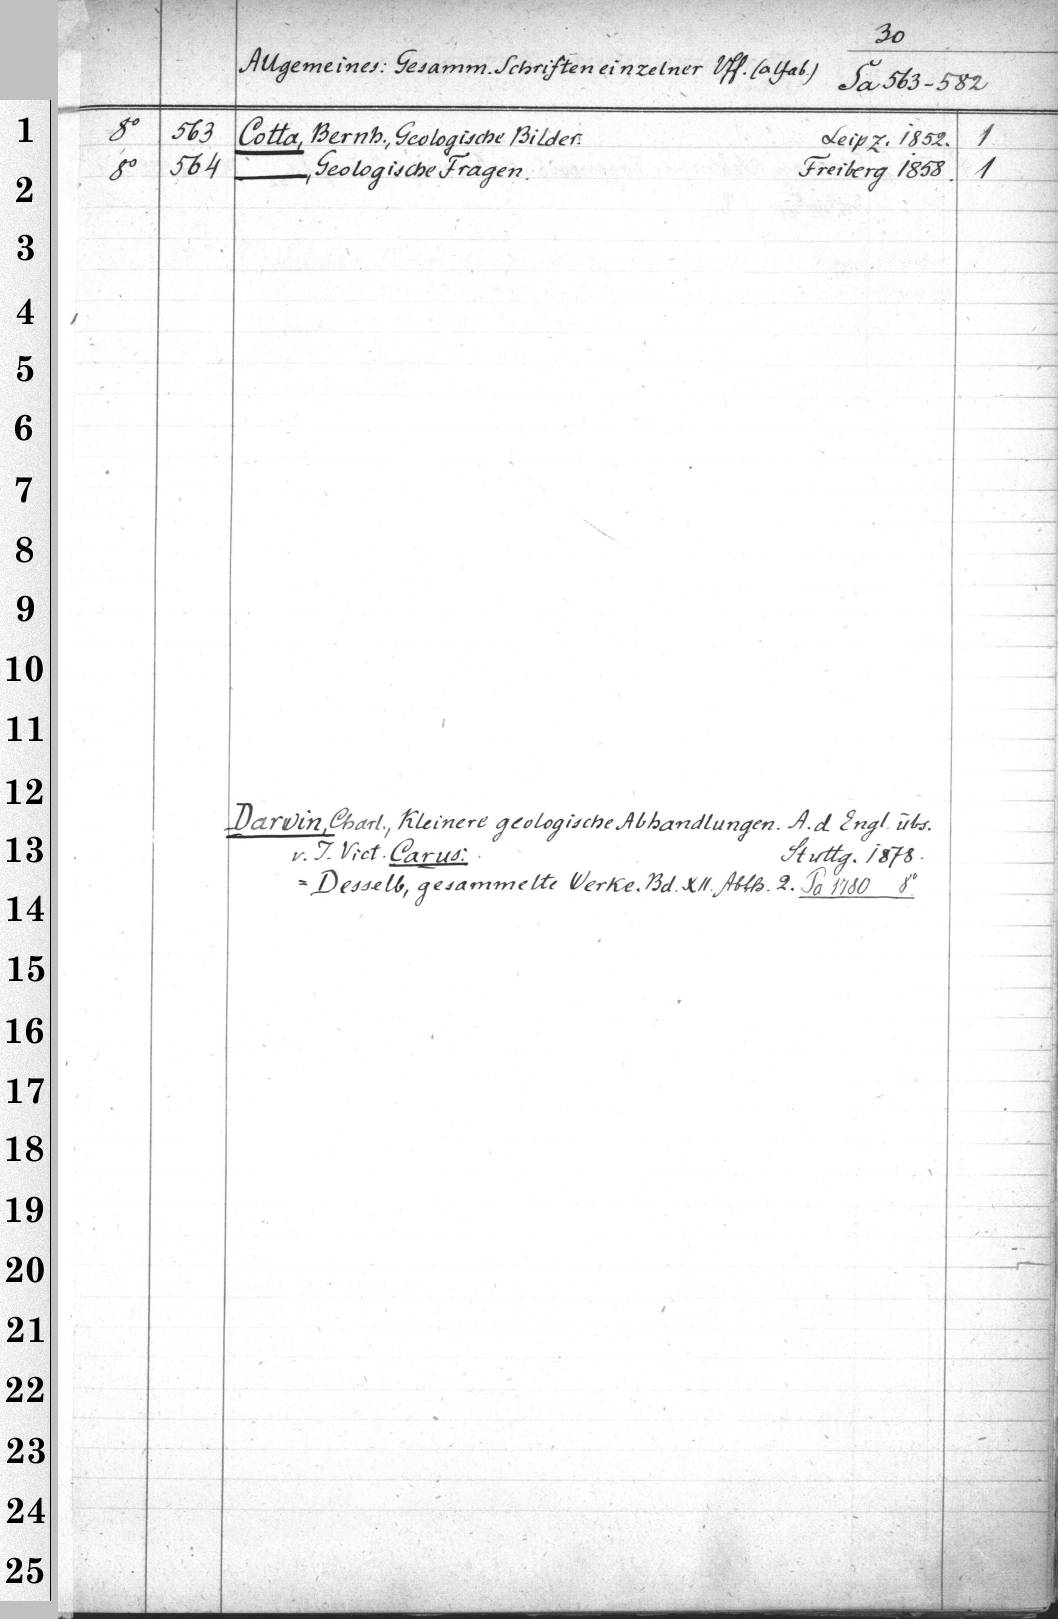 30
Allgemeines: Gesamm. Schriften einzelner Vff. (alfab.) Sa 563-582
1 8° 563 Cotta, Bernh., Geologische Bilder. Leipz. 1852. 1
2 8° 564 ———, Geologische Fragen. Freiberg 1858. 1
3
4
5
6
7
8
9
10
11
12
Darwin, Charl., Kleinere geologische Abhandlungen. A. d. Engl. übs.
13 v. J. Vict. Carus. Stuttg. 1878.
= Desselb, gesammelte Werke. Bd. XII. Abth. 2. Sa 1780 8°
14
15
16
17
18
19
20
21
22
23
24
25